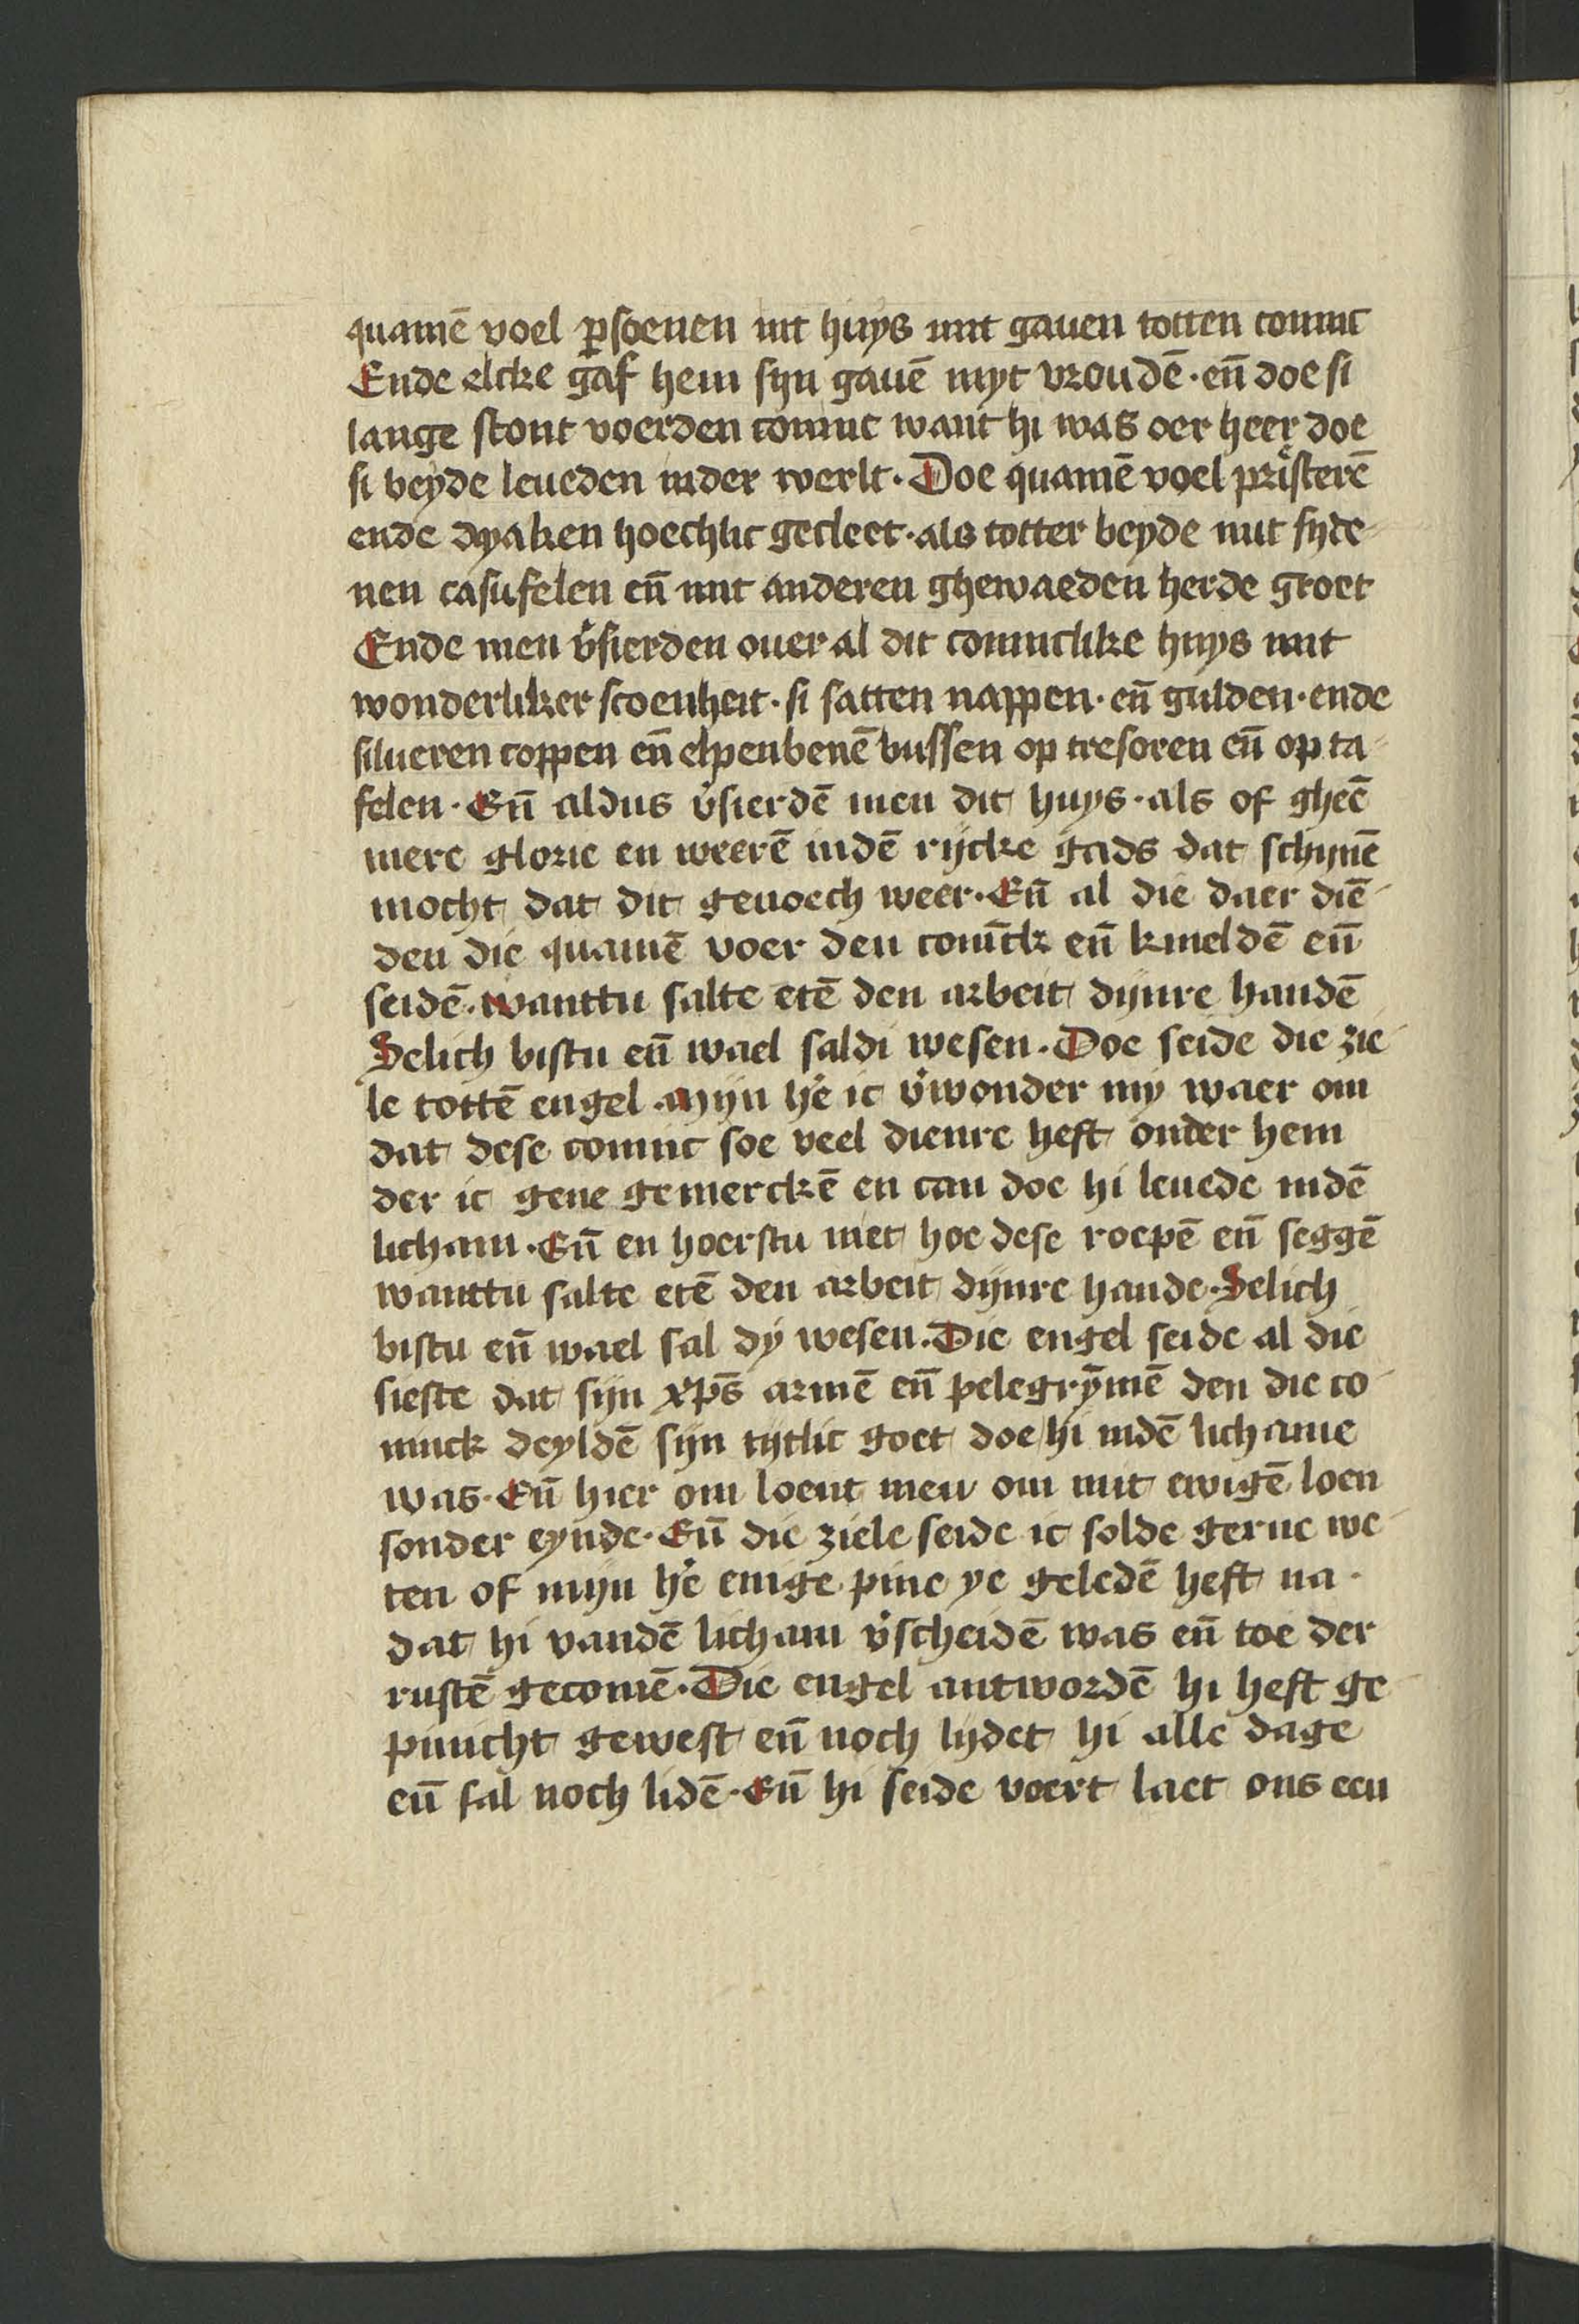 quamē voel ꝑsoenen int huys mit gauen totten coninc
Ende elcke gaf hem sijn gauē myt vroudē · en̄ doe si
lange stont voerden coninc want hi was oer heer doe
si beyde leueden inder werlt · Doe quamē voel pristerē
ende dyaken hoechlic gecleet · als totter beyde mit syde-
nen casufelen en̄ mit anderen ghewaeden herde groet
Ende men v̓sierden ouer al dit coninclike huys mit
wonderliker scoenheit · si satten nappen · en̄ gulden · ende
silueren coppen en̄ elpenbenē bussen op tresoren en̄ op ta-
felen · En̄ aldus v̓sierdē men dit huys · als of gheē
mere glorie en weerē indē rijcke gads dat schynē
mocht dat dit genoech weer · En̄ al die daer diē-
den die quamē voer den conīck en̄ knieldē en̄
seidē · wanttu salte etē den arbeit dijnre handē
Selich bistu en̄ wael saldi wesen · Doe seide die zie-
le tottē engel · Mijn he̓ ic v̓wonder my waer om
dat dese coninc soe veel dienre heft onder hem
der ic gene gemerckē en can doe hi leuede indē
licham · En̄ en hoerstu niet hoe dese roepē en̄ seggē
wanttu salte etē den arbeit dijnre hande · Selich
bistu en̄ wael sal dy wesen · Die engel seide al die
sieste dat sijn xp̄s armē en̄ pelegrȳmē den die co-
ninck deyldē sijn tijtlic goet doe hi indē lichame
was · En̄ hier om loent men om mit ewigē loen
sonder eynde · En̄ die ziele seide ic solde gerne we-
ten of mijn he̓ enige pine ye geledē heft na-
dat hi vandē licham v̓scheidē was en̄ toe der
rustē gecomē · Die engel antwordē hi heft ge-
pinicht gewest en̄ noch lijdet hi alle dage
en̄ sal noch lidē · En̄ hi seide voert laet ons een